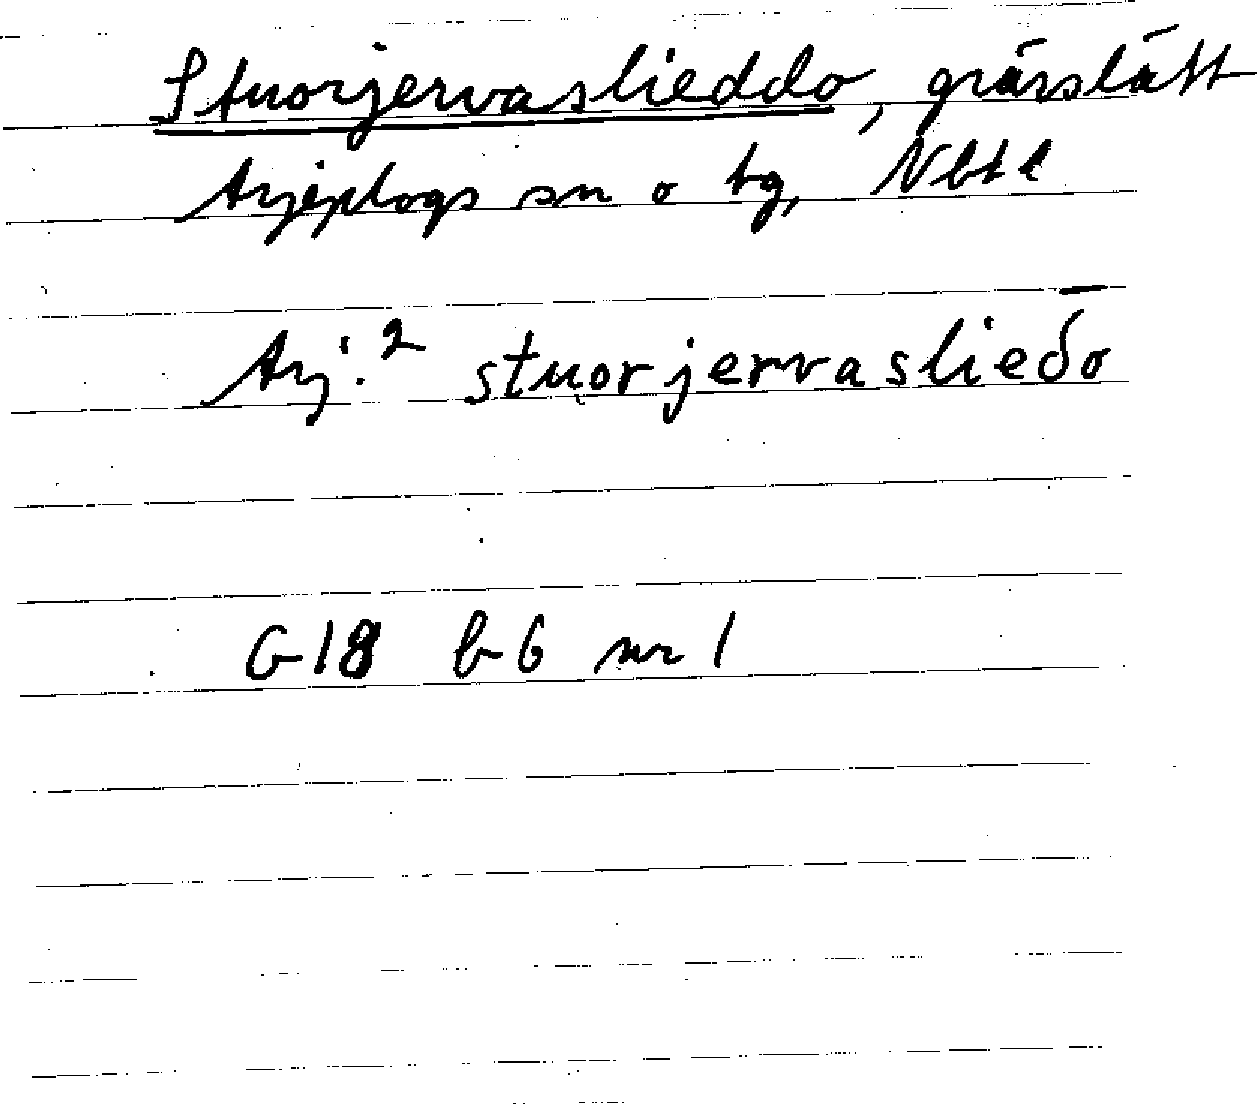 Stuorjervaslieddo, grässlått
Arjeplogs sn o tg, Nbtl
Arj.2 stuorjervaslieδ̄o
G18 b6 nr 1